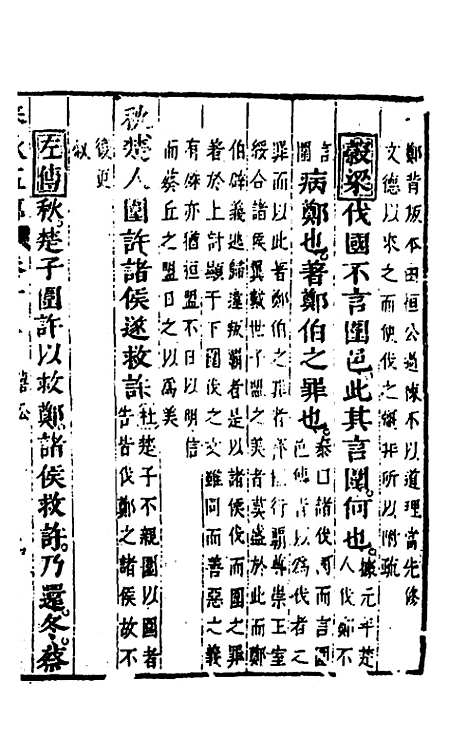 鄭背叛本由桓公過陳不以道理當先修
文德以來之而便伐之強非所以附疏
穀梁伐國不言圍邑此其言圍何也據元年楚
人伐鄭不
言圍
病鄭也著鄭伯之罪也
諸伐國而言圍
罪而以此著鄭伯之罪者行霸尊崇王室
綏合諸侯翼戴世子盟之美者莫盛於此而鄭
伯辟義逃歸違叛霸者是以諸侯伐而圍之罪
著於上討顯于下圍伐之文雖同而善惡之義
有殊亦猶桓盟不日以明信
而葵丘之盟日之以為美
秋楚人圍許諸侯遂救許杜楚子不親圍以圍者
告皆伐鄭之諸侯故不
復更
敘
左傳秋楚子圍許以救鄭諸侯救許乃還冬蔡